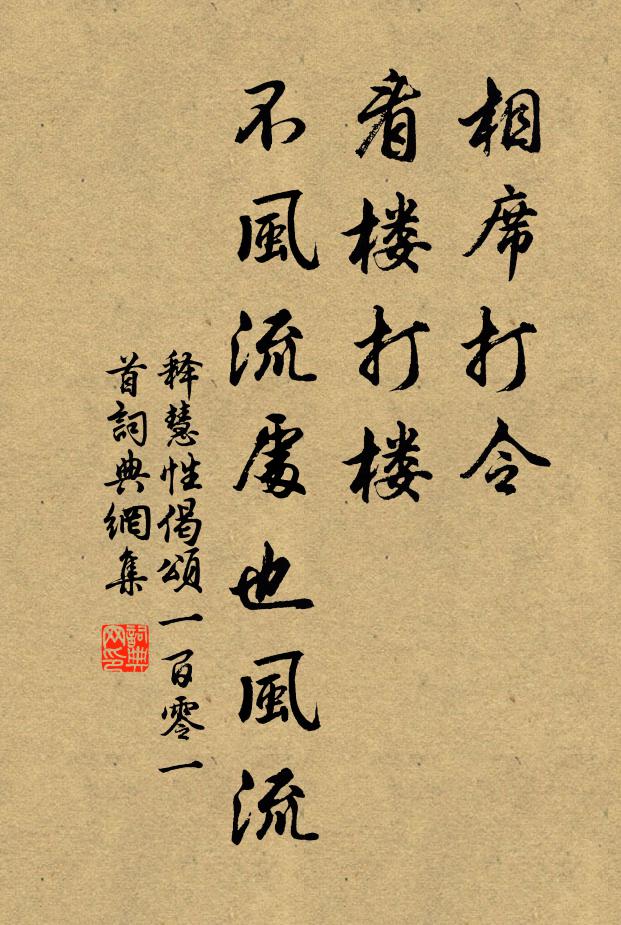 相席打令
看楼打楼
不風流處也風流
释慧性偈頌一百零一
首詞典網集
詞典
网印